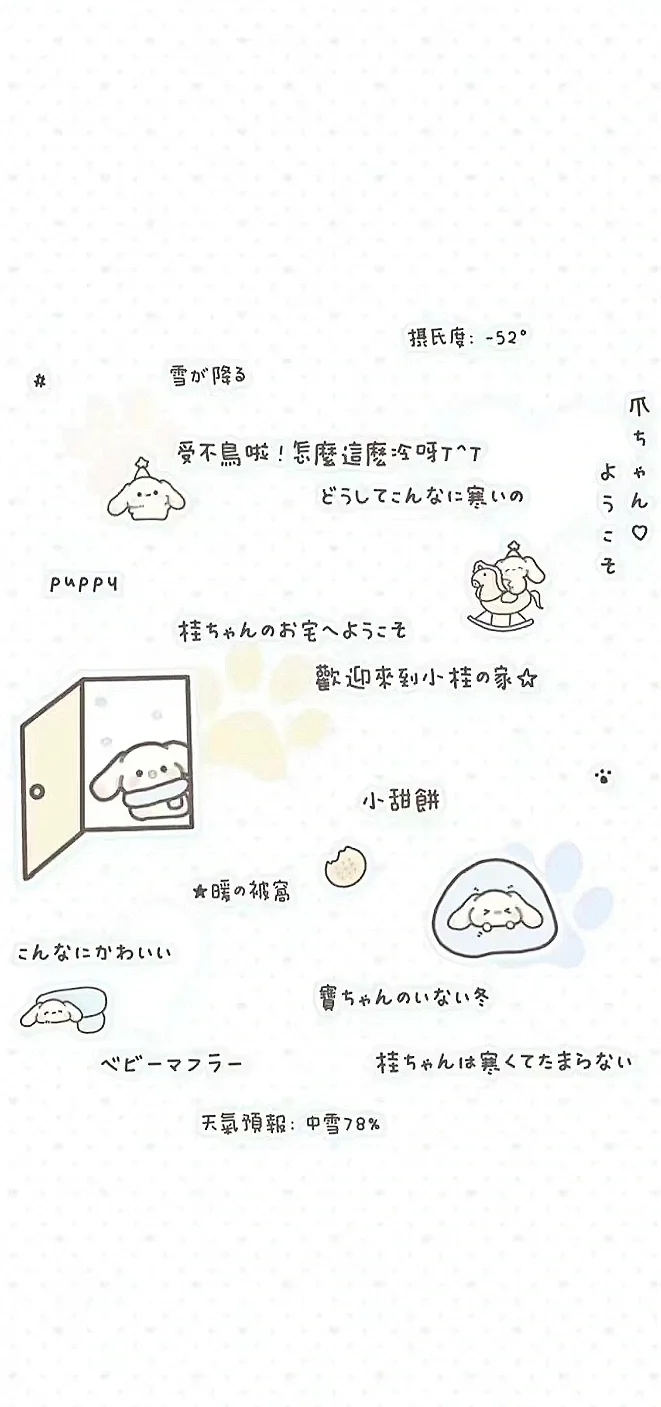 摂氏度: -52°
#
雪が降る
爪ちゃん♡
ようこそ
受不鳥啦！怎麼這麼冷呀T^T
どうしてこんなに寒いの
puppy
桂ちゃんのお宅へようこそ
歡迎來到小桂の家☆
小甜餅
★暖の被窩
こんなにかわいい
寶ちゃんのいない冬
ベビーマフラー
桂ちゃんは寒くてたまらない
天氣預報: 中雪78%